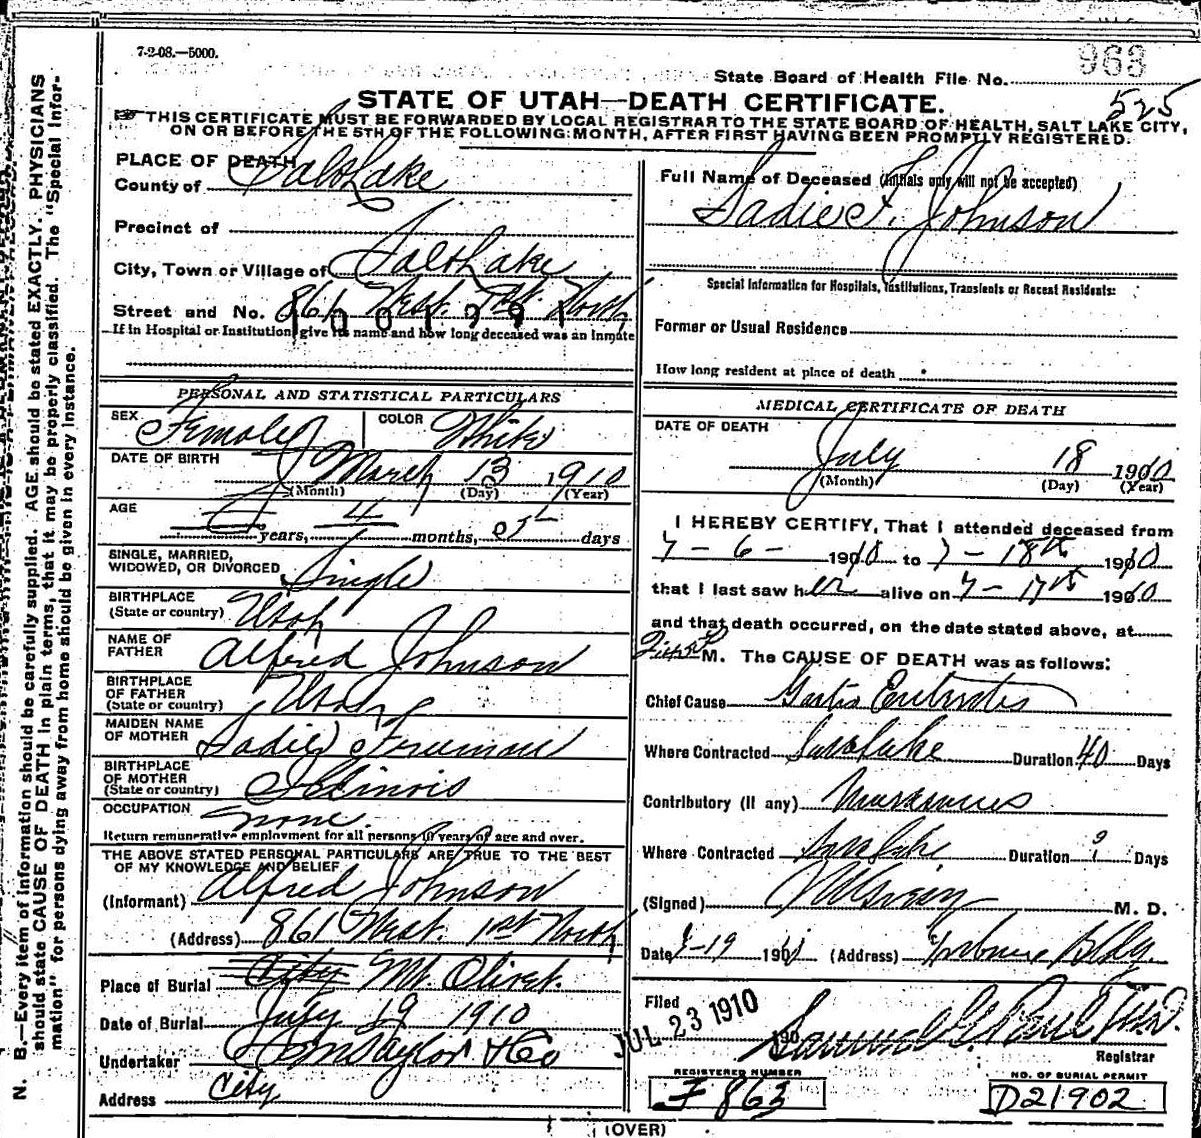 7-2-08.—5000.
968
State Board of Health File No.
525
STATE OF UTAH—DEATH CERTIFICATE.
THIS CERTIFICATE MUST BE FORWARDED BY LOCAL REGISTRAR TO THE STATE BOARD OF HEALTH, SALT LAKE CITY,
ON OR BEFORE THE 5TH OF THE FOLLOWING MONTH, AFTER FIRST HAVING BEEN PROMPTLY REGISTERED.
PLACE OF DEATH
County of Salt Lake
Precinct of
City, Town or Village of Salt Lake
Street and No. 861 West 1st North
If in Hospital or Institution, give its name and how long deceased was an Inmate
Full Name of Deceased (Initials only will not be accepted)
Sadie F. Johnson
Special Information for Hospitals, Institutions, Transients or Recent Residents:
Former or Usual Residence
How long resident at place of death
PERSONAL AND STATISTICAL PARTICULARS
SEX Female COLOR White
DATE OF BIRTH March 13 1910
(Month) (Day) (Year)
AGE
years, 4 months, 5 days
SINGLE, MARRIED,
WIDOWED, OR DIVORCED Single
BIRTHPLACE
(State or country) Utah
NAME OF
FATHER Alfred Johnson
BIRTHPLACE
OF FATHER
(State or country) Utah
MAIDEN NAME
OF MOTHER Sadie Freeman
BIRTHPLACE
OF MOTHER
(State or country) Illinois
OCCUPATION none.
Return remunerative employment for all persons 10 years of age and over.
THE ABOVE STATED PERSONAL PARTICULARS ARE TRUE TO THE BEST
OF MY KNOWLEDGE AND BELIEF
(Informant) Alfred Johnson
(Address) 861 West. 1st North
Place of Burial City Mt. Olivet.
Date of Burial July 19 1910
Undertaker Taylor & Co
Address City
MEDICAL CERTIFICATE OF DEATH
DATE OF DEATH
July 18 1910
(Month) (Day) (Year)
I HEREBY CERTIFY, That I attended deceased from
7-6- 1910 to 7-18th 1910
that I last saw her alive on 7-17th 1910
and that death occurred, on the date stated above, at
M. The CAUSE OF DEATH was as follows:
Chief Cause Gastro Enteritis
Where Contracted Salt Lake Duration 40 Days
Contributory (If any) Marasmus
Where Contracted Salt Lake Duration ? Days
(Signed) M. D.
Date 7-19 191 (Address) Bldg.
Filed JUL 23 1910 190
Samuel G. Paul
Registrar
REGISTERED NUMBER
F 863
NO. OF BURIAL PERMIT
D21902
(OVER)
N. B.—Every item of information should be carefully supplied. AGE should be stated EXACTLY. PHYSICIANS
should state CAUSE OF DEATH in plain terms, that it may be properly classified. The "Special Infor-
mation" for persons dying away from home should be given in every instance.